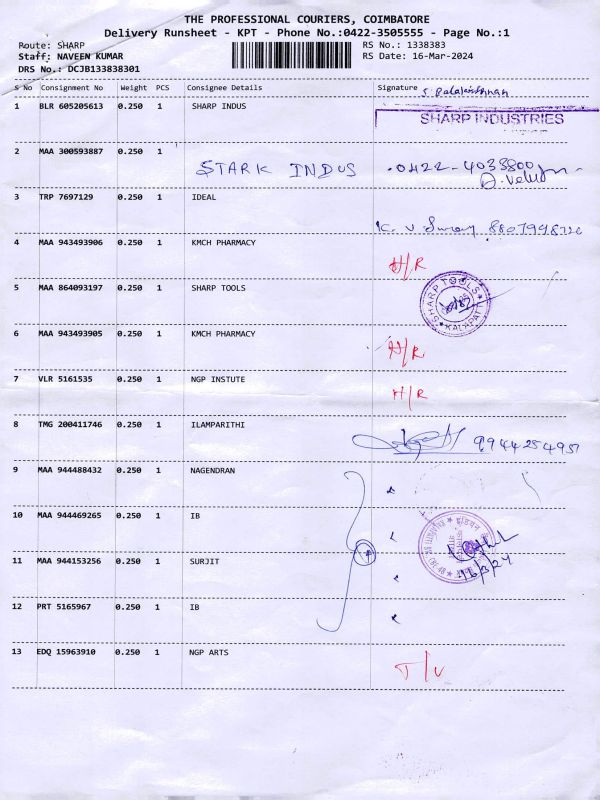 THE PROFESSIONAL COURIERS, COIMBATORE
Delivery Runsheet - KPT - Phone No.:0422-3505555 - Page No.:1
Route: SHARP RS No.: 1338383
Staff: NAVEEN KUMAR RS Date: 16-Mar-2024
DRS No.: DCJB133838301
S No Consignment No Weight PCS Consignee Details Signature
1 BLR 605205613 0.250 1 SHARP INDUS
SHARP INDUSTRIES
2 MAA 300593887 0.250 1
STARK INDUS 0422-4033800
3 TRP 7697129 0.250 1 IDEAL
K. V 8807948720
4 MAA 943493906 0.250 1 KMCH PHARMACY
H/R
5 MAA 864093197 0.250 1 SHARP TOOLS
SHARP TOOLS
KALAPATTI
6 MAA 943493905 0.250 1 KMCH PHARMACY
H/R
7 VLR 5161535 0.250 1 NGP INSTUTE
H/R
8 TMG 200411746 0.250 1 ILAMPARITHI
9944254957
9 MAA 944488432 0.250 1 NAGENDRAN
10 MAA 944469265 0.250 1 IB
11 MAA 944153256 0.250 1 SURJIT
16/3/24
12 PRT 5165967 0.250 1 IB
13 EDQ 15963910 0.250 1 NGP ARTS
T/V